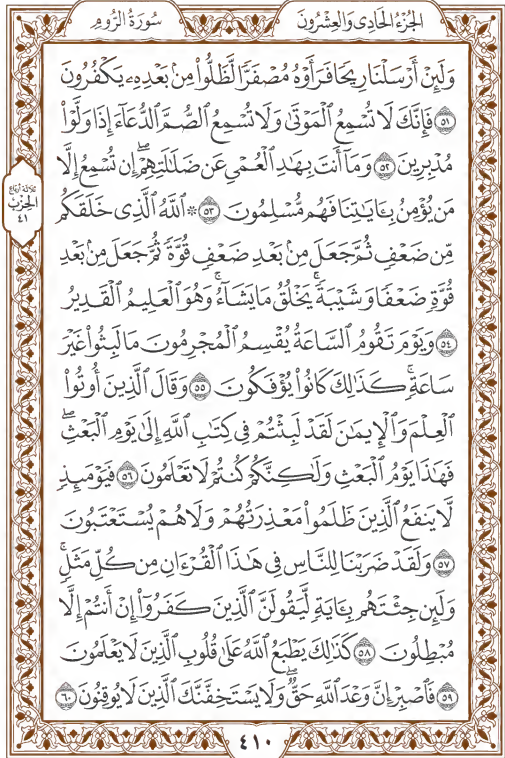 سُورَةُ الرُّومِ
الجُزْءُ الحَادِى وَالعِشْرُونَ
وَلَئِنْ أَرْسَلْنَا رِيحًا فَرَأَوْهُ مُصْفَرًّا لَّظَلُّوا۟ مِنۢ بَعْدِهِۦ يَكْفُرُونَ
٥١ فَإِنَّكَ لَا تُسْمِعُ ٱلْمَوْتَىٰ وَلَا تُسْمِعُ ٱلصُّمَّ ٱلدُّعَآءَ إِذَا وَلَّوْا۟
مُدْبِرِينَ ٥٢ وَمَآ أَنتَ بِهَٰدِ ٱلْعُمْىِ عَن ضَلَٰلَتِهِمْ ۖ إِن تُسْمِعُ إِلَّا
مَن يُؤْمِنُ بِـَٔايَٰتِنَا فَهُم مُّسْلِمُونَ ٥٣ ۞ ٱللَّهُ ٱلَّذِى خَلَقَكُم
مِّن ضَعْفٍ ثُمَّ جَعَلَ مِنۢ بَعْدِ ضَعْفٍ قُوَّةً ثُمَّ جَعَلَ مِنۢ بَعْدِ
قُوَّةٍ ضَعْفًا وَشَيْبَةً ۚ يَخْلُقُ مَا يَشَآءُ ۖ وَهُوَ ٱلْعَلِيمُ ٱلْقَدِيرُ
٥٤ وَيَوْمَ تَقُومُ ٱلسَّاعَةُ يُقْسِمُ ٱلْمُجْرِمُونَ مَا لَبِثُوا۟ غَيْرَ
سَاعَةٍ ۚ كَذَٰلِكَ كَانُوا۟ يُؤْفَكُونَ ٥٥ وَقَالَ ٱلَّذِينَ أُوتُوا۟
ٱلْعِلْمَ وَٱلْإِيمَٰنَ لَقَدْ لَبِثْتُمْ فِى كِتَٰبِ ٱللَّهِ إِلَىٰ يَوْمِ ٱلْبَعْثِ ۖ
فَهَٰذَا يَوْمُ ٱلْبَعْثِ وَلَٰكِنَّكُمْ كُنتُمْ لَا تَعْلَمُونَ ٥٦ فَيَوْمَئِذٍ
لَّا يَنفَعُ ٱلَّذِينَ ظَلَمُوا۟ مَعْذِرَتُهُمْ وَلَا هُمْ يُسْتَعْتَبُونَ
٥٧ وَلَقَدْ ضَرَبْنَا لِلنَّاسِ فِى هَٰذَا ٱلْقُرْءَانِ مِن كُلِّ مَثَلٍ ۚ
وَلَئِن جِئْتَهُم بِـَٔايَةٍ لَّيَقُولَنَّ ٱلَّذِينَ كَفَرُوٓا۟ إِنْ أَنتُمْ إِلَّا
مُبْطِلُونَ ٥٨ كَذَٰلِكَ يَطْبَعُ ٱللَّهُ عَلَىٰ قُلُوبِ ٱلَّذِينَ لَا يَعْلَمُونَ
٥٩ فَٱصْبِرْ إِنَّ وَعْدَ ٱللَّهِ حَقٌّ ۖ وَلَا يَسْتَخِفَّنَّكَ ٱلَّذِينَ لَا يُوقِنُونَ ٦٠
ثلاثة أرباع
الحزب
٤١
٤١٠